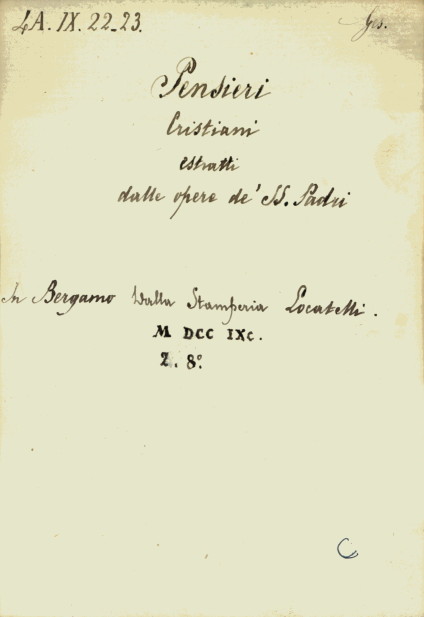 4A. IX. 22-23.
Ges.
Pensieri
Cristiani
estratti
dalle opere de' SS. Padri
In Bergamo Dalla Stamperia Locatelli.
M DCC IXC.
2. 8°.
C